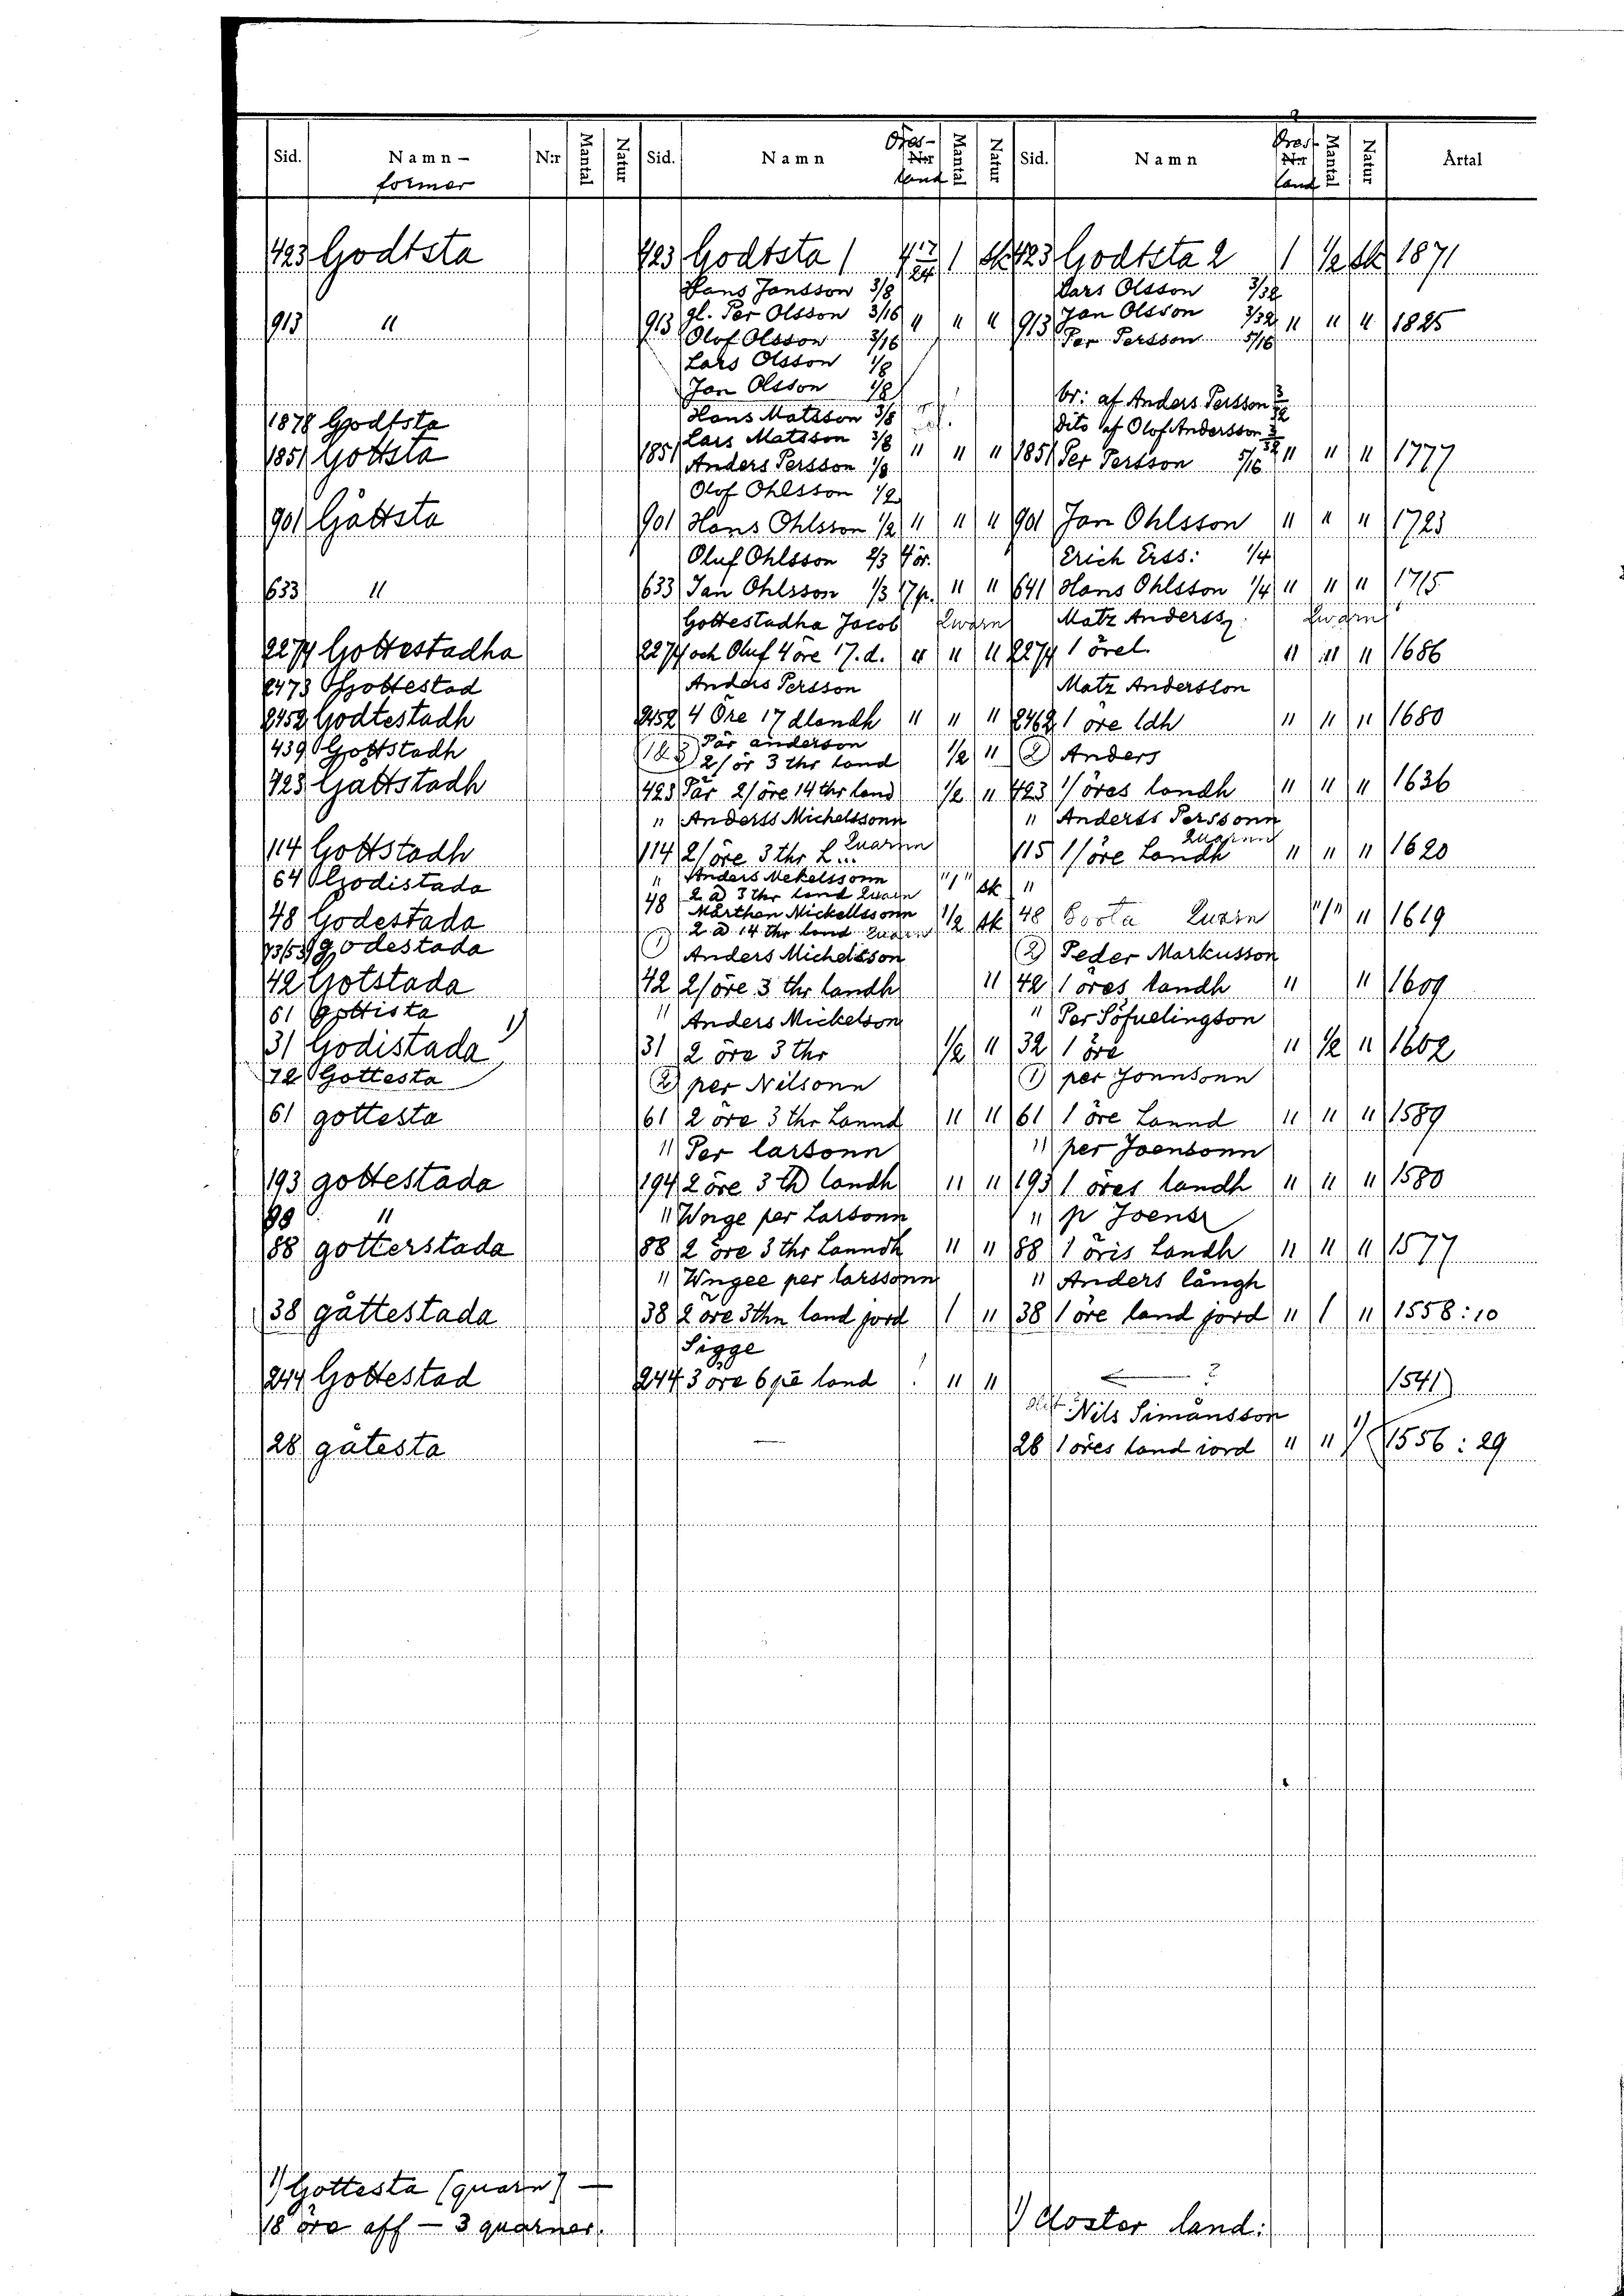 Sid. Namn- former N:r Mantal Natur Sid. Namn Öres- N:r land Mantal Natur Sid. Namn Öres- N:r land Mantal Natur Årtal
423 Godtsta 423 Godtsta 1 4 17/24 1 sk 423 Godtsta 2 1 1/2 sk 1871
Hans Jansson 3/8 Lars Olsson 3/32
913 " 913 gl. Per Olsson 3/16 " " " 913 Jan Olsson 3/32 " " " 1825
Olof Olsson 3/16 Per Persson 5/16
Lars Olsson 1/8
Jan Olsson 1/8 br: af Anders Persson
1878 Godtsta Hans Matsson 3/8 dito af Olof Andersson
1851 Gottsta 1851 Lars Matsson 3/8 " " " 1851 Per Persson 5/16 " " " 1777
Anders Persson 1/8
Olof Ohlsson 1/2
901 Gåttsta 901 Hans Ohlsson 1/2 " " " 901 Jan Ohlsson " " " 1723
Oluf Ohlsson 2/3 4 ör. Erich Erss: 1/4
633 " 633 Jan Ohlsson 1/3 17 p. " " 641 Hans Ohlsson 1/4 " " " 1715
Gottestadha Jacob Qwarn Matz Anderss Qwarn
2274 Gottestadha 2274 och Oluf 4 öre 17. d. " " " 2274 1 örel " " " 1686
2473 Gottestad Anders Persson Matz Andersson
2452 Godtestadh 2452 4 Öre 17 dlandh " " " 2462 1 öre ldh " " " 1680
439 Gottstadh Pär anderson 2 / ör 3 thr land 1/2 " 2) Anders
423 Gattstadh 423 Pär 2 / öre 14 thr land 1/2 " 423 1 / öres landh " " " 1636
" Anderss Michelssonn " Anderss Perssonn
114 Gottstadh 114 2 / öre 3 thr L... Quarnn 115 1 / öre Landh Quarnn " " " 1620
64 Godistada " Anders Mekelssonn 2 a 3 thr land Quarn " 1 " sk "
48 Godestada 48 Mårthen Mickellssonn 2 a 14 thr land Quarn 1/2 sk 48 Quarn " 1 " " 1619
godestada 1) Anders Michelsson 2) Peder Markusson
42 Gotstada 42 2 / öre 3 thr landh " 42 1 öres landh " " 1609
61 Gottista " Anders Mickelson " Per Söfuelingson
31 Godistada 1) 31 2 öre 3 thr 1/2 " 32 1 öre " 1/2 " 1602
72 Gottesta 2) per Nilsonn 1) per Jonnsonn
61 gottesta 61 2 öre 3 thr Lannd " " 61 1 öre Lannd " " " 1589
" Per larsonn " per Joensonn
193 gottestada 194 2 öre 3 th landh " " 193 1 öres landh " " " 1580
99 " " Wnge per Larsonn " p Joens
88 gotterstada 88 2 öre 3 thr Lanndh " " 88 1 öris landh " " " 1577
" Wngee per larssonn " Anders långh
38 gåttestada 38 2 öre 3 thn land jord 1 " 38 1 öre land jord " 1 " 1558:10
Sigge
244 Gottestad 244 3 öre 6 pe land . " " — ? 1541
Nils Simånsson
28 gåtesta — 28 1 öres land iord " " 1) 1556 : 29
1) Gottesta (quarn) —
18 öre aff — 3 quarner.
1) closter land: